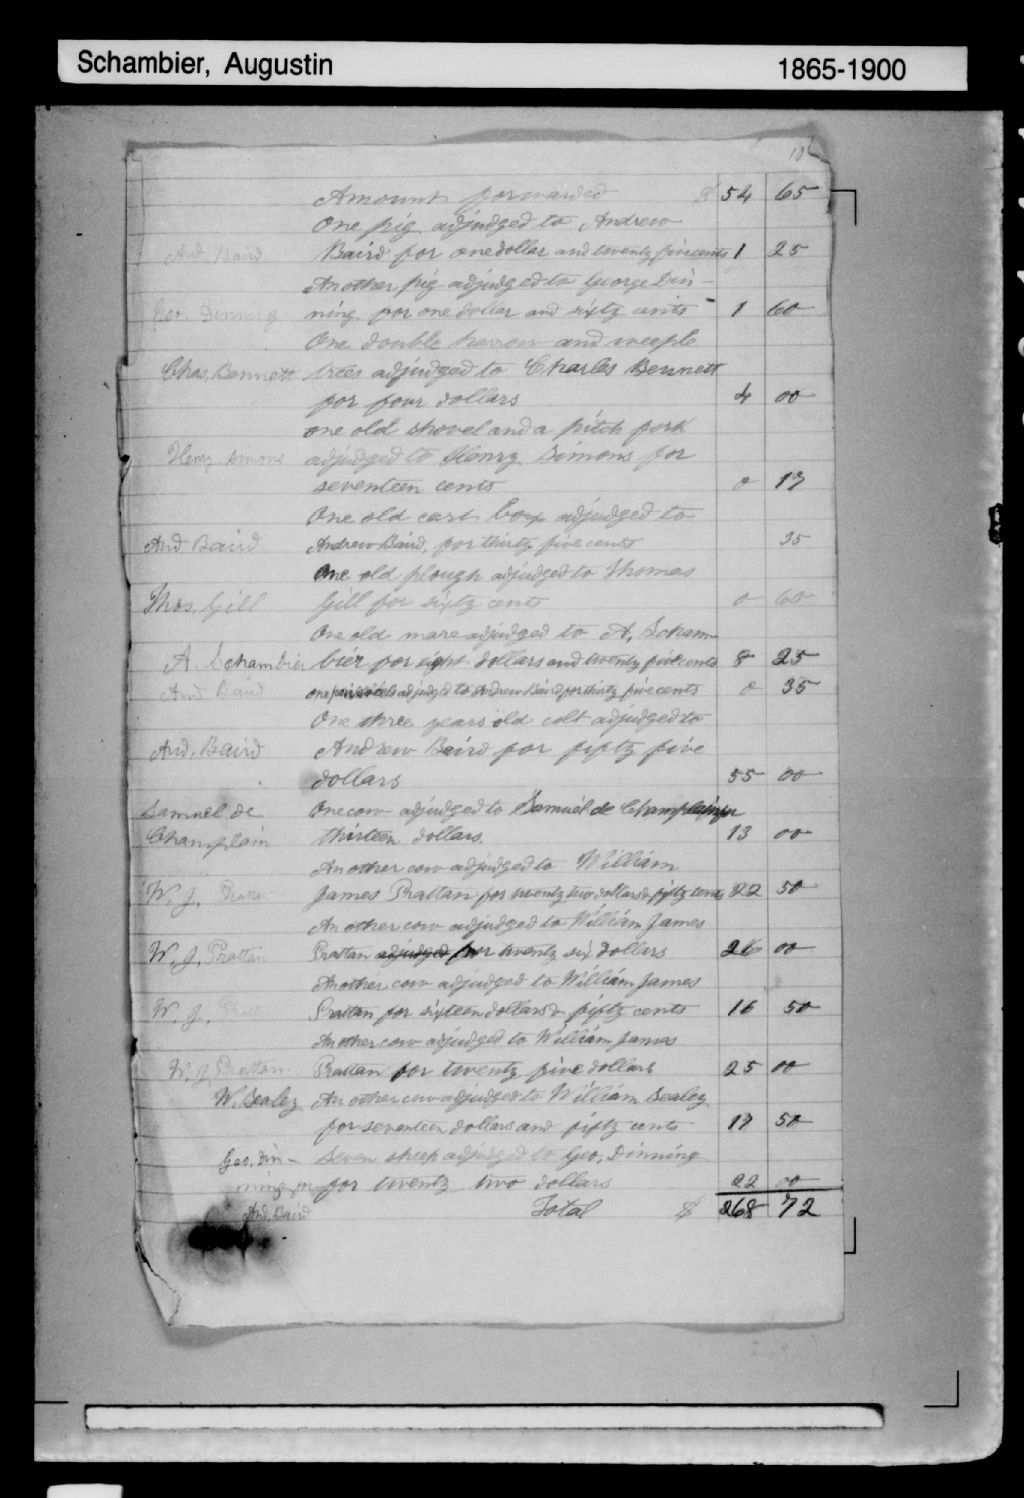 Schambier, Augustin 1865-1900
10
Amount forwarded $ 54 65
One pig adjudged to Andrew
And. Baird Baird for one dollar and twenty five cents 1 25
Another pig adjudged to George Din-
Geo. Dinning ning for one dollar and sixty cents 1 60
One double harrow and weeple
Chas. Bennett trees adjudged to Charles Bennett
for four dollars 4 00
one old shovel and a pitch fork
Henry Simons adjudged to Henry Simons for
seventeen cents 0 17
One old cart box adjudged to
And Baird Andrew Baird, for thirty five cents 35
One old plough adjudged to Thomas
Thos. Gill Gill for sixty cents 0 60
One old mare adjudged to A. Scham-
A. Schambier bier for eight dollars and twenty five cents 8 25
And Baird one pair adjudged to Andrew Baird for thirty five cents 0 35
One three years old colt adjudged to
And. Baird Andrew Baird for fifty five
dollars 55 00
Samuel de One cow adjudged to Samuel de Champlain for
Champlain thirteen dollars. 13 00
Another cow adjudged to William
W. J. James Prattan for twenty two dollars & fifty cents 22 50
Another cow adjudged to William James
W. J. Prattan Prattan adjudged for twenty six dollars 26 00
Another cow adjudged to William James
W. J. Prattan for sixteen dollars & fifty cents 16 50
Another cow adjudged to William James
W. J. Prattan Prattan for twenty five dollars 25 00
W. Sealey Another cow adjudged to William Sealey
for seventeen dollars and fifty cents 17 50
Geo. Din- Seven sheep adjudged to Geo. Dinning
ning for for twenty two dollars 22 00
And. Baird Total $ 268 72